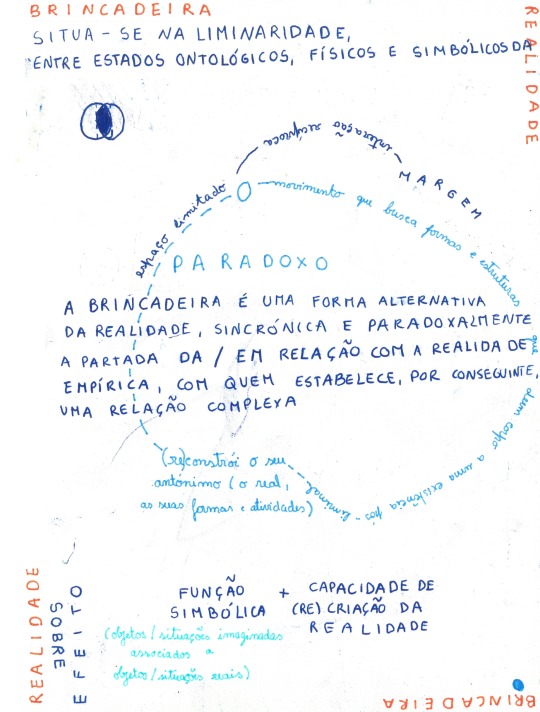 BRINCADEIRA
SITUA-SE NA LIMINARIDADE,
ENTRE ESTADOS ONTOLÓGICOS, FÍSICOS E SIMBÓLICOS DA
REALIDADE
espaço limitado
interação recíproca
MARGEM
O movimento que busca formas e estruturas que deem corpo a uma existência pós-liminal
PARADOXO
A BRINCADEIRA É UMA FORMA ALTERNATIVA
DA REALIDADE, SINCRÓNICA E PARADOXALMENTE
A PARTADA DA / EM RELAÇÃO COM A REALIDADE
EMPÍRICA, COM QUEM ESTABELECE, POR CONSEGUINTE,
UMA RELAÇÃO COMPLEXA
(re)constrói o seu
antónimo (o real,
as suas formas e atividades)
FUNÇÃO + CAPACIDADE DE
SIMBÓLICA (RE)CRIAÇÃO DA
REALIDADE
(objetos/situações imaginadas
associados a
objetos/situações reais)
REALIDADE
SOBRE
EFEITO
BRINCADEIRA